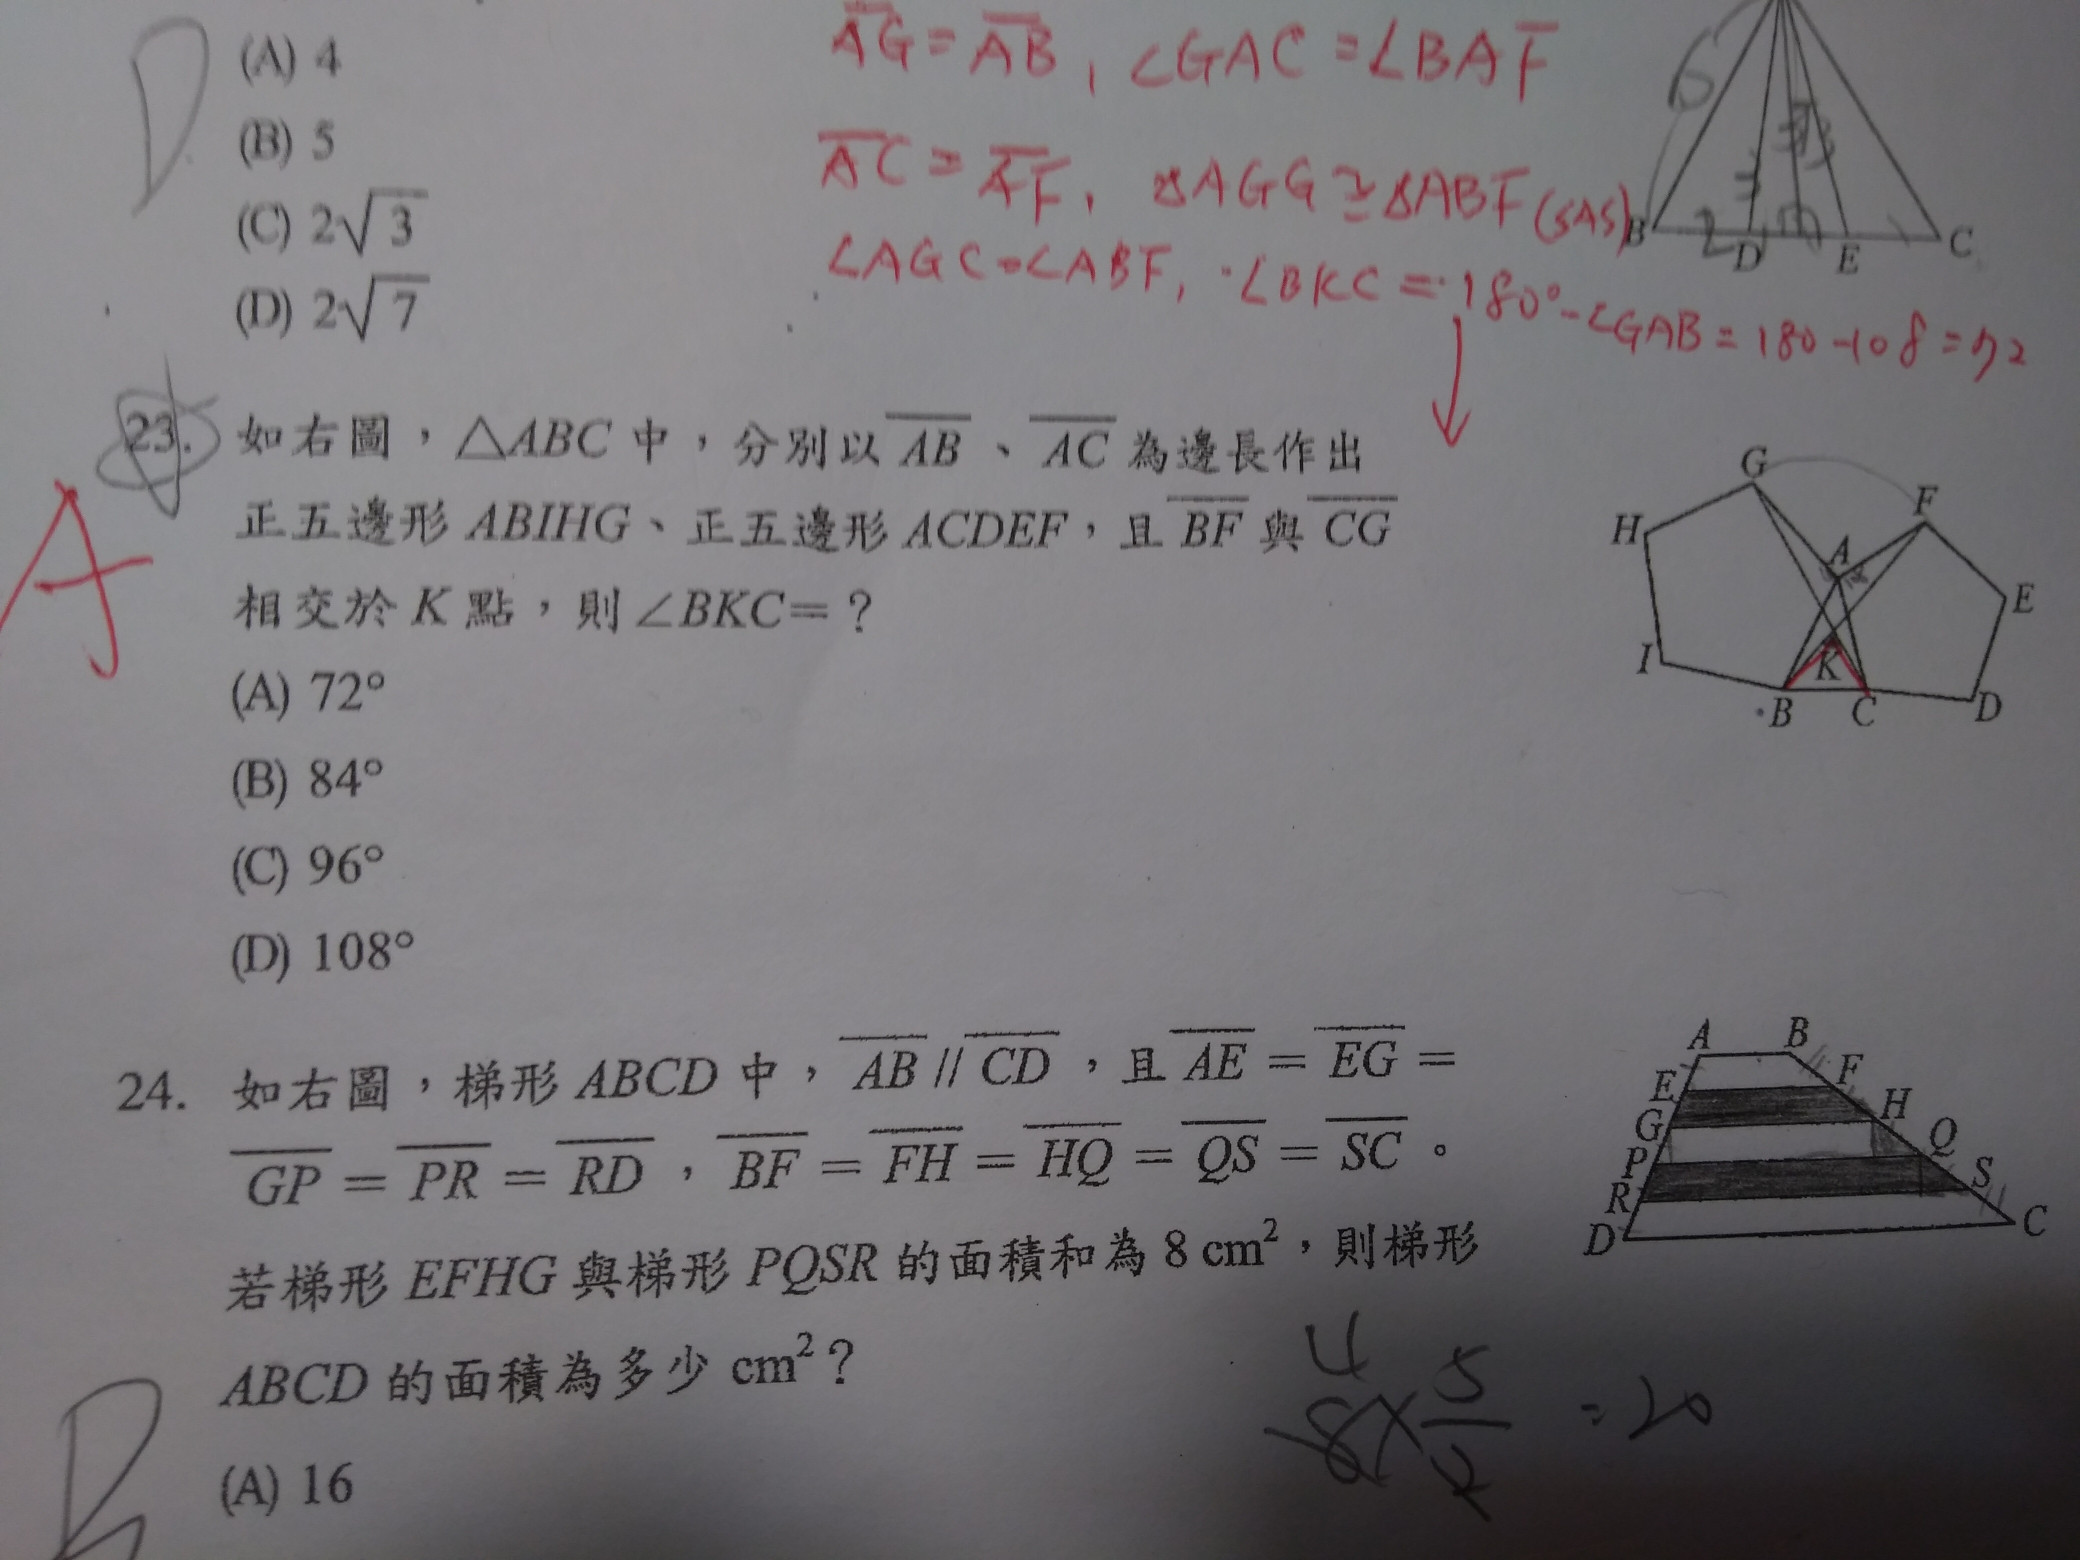 (A) 4
(B) 5
(C) 2√3
(D) 2√7
AG = AB, ∠GAC = ∠BAF
AC = AF, △AGG ≅ △ABF (SAS)
∠AGC = ∠ABF, ∠BKC = 180° - ∠GAB = 180 - 108 = 72
B D E C
2
D
23. 如右圖，△ABC 中，分別以 AB、AC 為邊長作出
正五邊形 ABIHG、正五邊形 ACDEF，且 BF 與 CG
相交於 K 點，則 ∠BKC＝？
(A) 72°
(B) 84°
(C) 96°
(D) 108°
A
G F H A E I K B C D
24. 如右圖，梯形 ABCD 中，AB // CD，且 AE = EG =
GP = PR = RD，BF = FH = HQ = QS = SC。
若梯形 EFHG 與梯形 PQSR 的面積和為 8 cm²，則梯形
ABCD 的面積為多少 cm²？
(A) 16
B
A B E F G H P Q R S D C
4
8 × 5/2 = 20